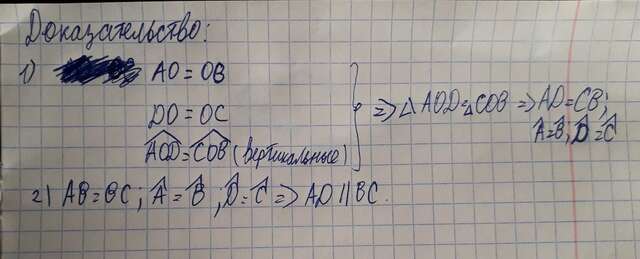 Доказательство:
1) AO = OB
DO = OC
∠AOD = ∠COB (вертикальные)
=> △AOD = △COB => AD = CB;
Â = B̂; D̂ = Ĉ
2) AB = BC; Â = B̂; D̂ = Ĉ => AD || BC.